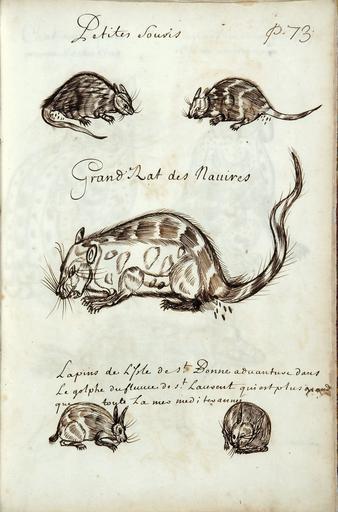 Petites Souris
P. 73
Grand Rat des Nauires
Lapins de L'Isle de s.t Bonne aduanture dans
Le golphe du fleuue de s.t Laurent qui est plus grand
que toute La mer mediteranne